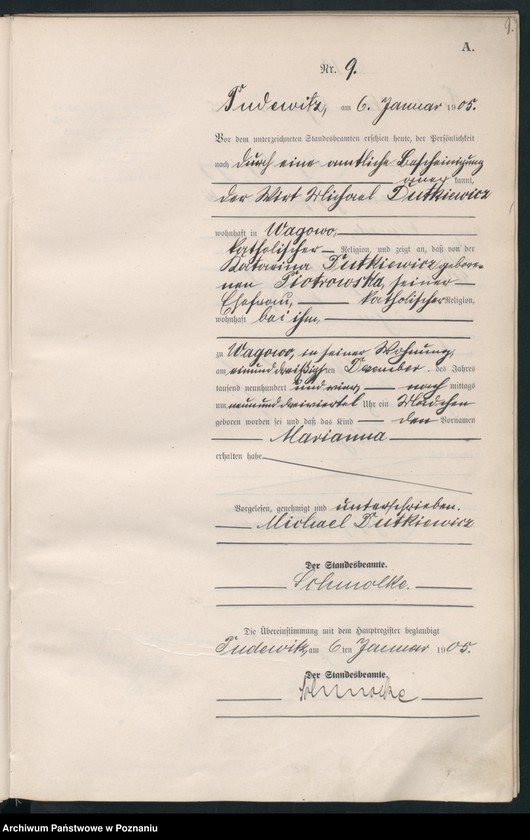 9.
A.
Nr. 9.
Pudewitz, am 6. Januar 1905.
Vor dem unterzeichneten Standesbeamten erschien heute, der Persönlichkeit
nach durch eine amtliche Bescheinigung
aner kannt,
der Wirt Michael Dutkiewicz
wohnhaft in Wagowo,
katholischer Religion, und zeigt an, daß von der
Katarina Dutkiewicz gebore-
nen Piotrowska, seiner
Ehefrau, katholischer Religion,
wohnhaft bei ihm,
zu Wagowo, in seiner Wohnung,
am einunddreißigsten Dezember des Jahres
tausend neunhundert und vier, nach mittags
um neununddreiviertel Uhr ein Mädchen
geboren worden sei und daß das Kind den Vornamen
Marianna
erhalten habe.
Vorgelesen, genehmigt und unterschrieben.
Michael Dutkiewicz
Der Standesbeamte.
Schmolke.
Die Übereinstimmung mit dem Hauptregister beglaubigt
Pudewitz, am 6ten Januar 1905.
Der Standesbeamte.
Schmolke
Archiwum Państwowe w Poznaniu
szukajwarchiwach.gov.pl